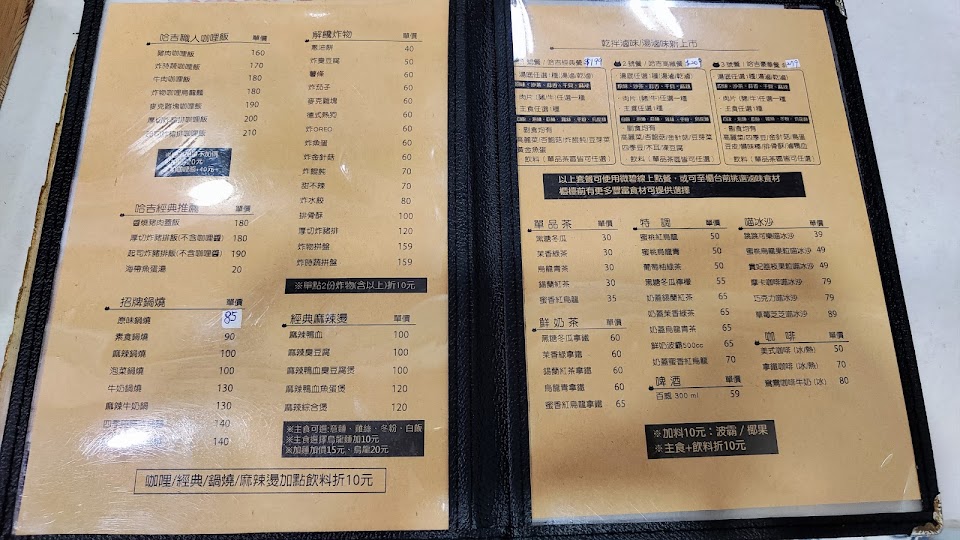 哈吉職人咖哩飯 單價
豬肉咖哩飯 160
炸時蔬咖哩飯 170
牛肉咖哩飯 180
炸物咖哩烏龍麵 180
麥克雞塊咖哩飯 190
厚切炸豬排咖哩飯 200
起司炸豬排咖哩飯 210
哈吉經典推薦 單價
醬燒豬肉蓋飯 180
厚切炸豬排飯(不含咖哩醬) 180
起司炸豬排飯(不含咖哩醬) 190
海帶魚蛋湯 20
招牌鍋燒 單價
原味鍋燒 85
素食鍋燒 90
麻辣鍋燒 100
泡菜鍋燒 100
牛奶鍋燒 130
麻辣牛奶鍋 130
140
140
解饞炸物 單價
蔥油餅 40
炸臭豆腐 50
薯條 60
炸茄子 60
麥克雞塊 60
德式熱狗 60
炸OREO 60
炸魚蛋 60
炸金針菇 60
炸餛飩 70
甜不辣 70
炸水餃 80
排骨酥 100
厚切炸豬排 120
炸物拼盤 159
炸時蔬拼盤 159
※單點2份炸物(含以上)折10元
經典麻辣燙 單價
麻辣鴨血 100
麻辣臭豆腐 100
麻辣鴨血臭豆腐煲 100
麻辣鴨血魚蛋煲 120
麻辣綜合煲 120
※主食可選:意麵、雞絲、冬粉、白飯
※主食選擇烏龍麵加10元
※加麵加價15元、烏龍20元
咖哩/經典/鍋燒/麻辣燙加點飲料折10元
乾拌滷味/湯滷味新上市
1號餐/哈吉經典餐 $199
湯底任選1種(湯滷\乾滷)
肉片(豬\牛)任選一種
主食任選一種
副食均有
高麗菜/杏鮑菇/炸餛飩/豆芽菜
黃金魚蛋
飲料(單品茶區皆可任選)
2號餐/哈吉高纖餐
湯底任選1種(湯滷\乾滷)
肉片(豬\牛)任選一種
主食任選一種
副食均有
高麗菜/杏鮑菇/金針菇/豆芽菜
四季豆/木耳/凍豆腐
飲料(單品茶區皆可任選)
3號餐/哈吉豪華餐
湯底任選1種(湯滷\乾滷)
肉片(豬\牛)任選一種
主食任選一種
副食均有
高麗菜/四季豆/金針菇/鳥蛋
飲料(單品茶區皆可任選)
以上套餐可使用微碧線上點餐，或可至櫃台前挑選滷味食材
櫃檯前有更多豐富食材可提供選擇
單品茶 單價
黑糖冬瓜 30
茉香綠茶 30
烏龍青茶 30
錫蘭紅茶 30
蜜香紅烏龍 35
鮮奶茶 單價
黑糖冬瓜拿鐵 60
茉香綠拿鐵 60
錫蘭紅茶拿鐵 60
烏龍青拿鐵 60
蜜香紅烏龍拿鐵 65
特調 單價
蜜桃紅烏龍 50
蜜桃烏龍青 50
葡萄柚綠茶 50
黑糖冬瓜檸檬 55
奶蓋錫蘭紅茶 65
奶蓋茉香綠茶 65
奶蓋烏龍青茶 65
鮮奶波霸500cc 65
奶蓋蜜香紅烏龍 70
啤酒 單價
百威 300 ml 59
喵冰沙 單價
跳跳可樂喵冰沙 39
蜜桃烏龍果粒喵冰沙 49
貴妃荔枝果粒喵冰沙 49
摩卡咖啡喵冰沙 79
巧克力喵冰沙 79
草莓芝芝喵冰沙 89
咖啡 單價
美式咖啡(冰/熱) 50
拿鐵咖啡(冰/熱) 70
鴛鴦咖啡牛奶(冰) 80
※加料10元：波霸/椰果
※主食+飲料折10元